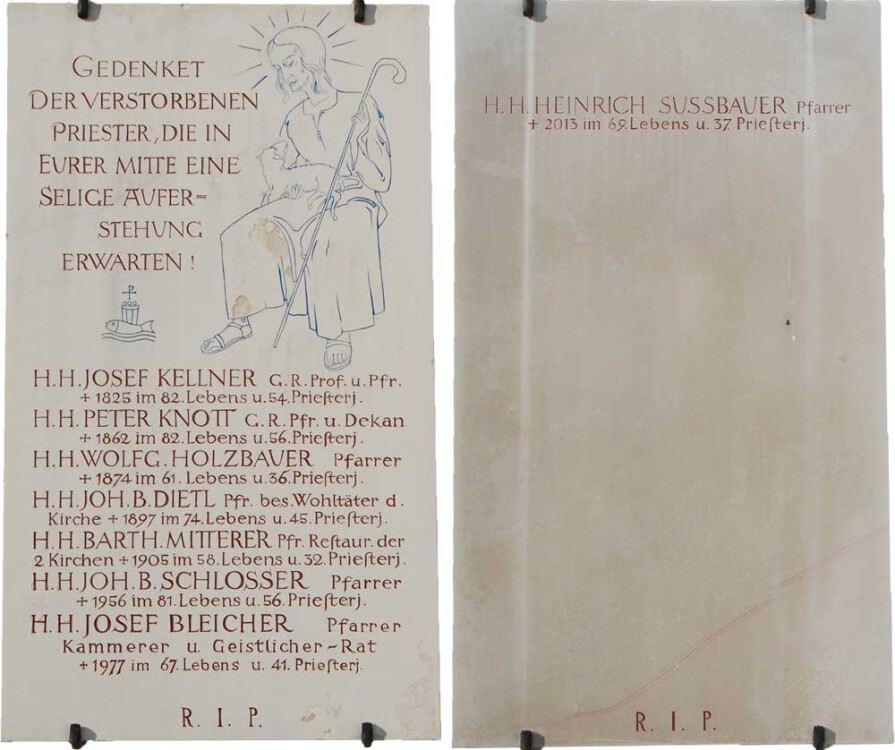 GEDENKET
DER VERSTORBENEN
PRIESTER, DIE IN
EURER MITTE EINE
SELIGE AUFER=
STEHUNG
ERWARTEN !
H.H. JOSEF KELLNER G.R. Prof. u. Pfr.
+ 1825 im 82. Lebens u. 54. Priesterj.
H.H. PETER KNOTT G.R. Pfr. u. Dekan
+ 1862 im 82. Lebens u. 56. Priesterj.
H.H. WOLFG. HOLZBAUER Pfarrer
+ 1874 im 61. Lebens u. 36. Priesterj.
H.H. JOH. B. DIETL Pfr. bes. Wohltäter d.
Kirche + 1897 im 74. Lebens u. 45. Priesterj.
H.H. BARTH. MITTERER Pfr. Restaur. der
2 Kirchen + 1905 im 58. Lebens u. 32. Priesterj.
H.H. JOH. B. SCHLOSSER Pfarrer
+ 1956 im 81. Lebens u. 56. Priesterj.
H.H. JOSEF BLEICHER Pfarrer
Kammerer u. Geistlicher-Rat
+ 1977 im 67. Lebens u. 41. Priesterj.
R. I. P.
H.H. HEINRICH SUSSBAUER Pfarrer
+ 2013 im 69. Lebens u. 37. Priesterj.
R. I. P.